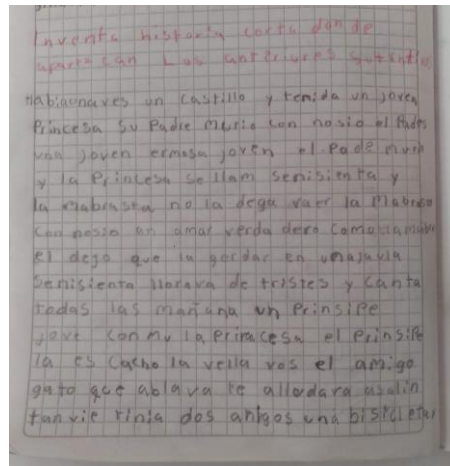 Inventa historia corta donde
aparezcan Los anteriores
Habiaunaves un castillo y tenida un joven
Princesa Su Padre murio con nosio el Padre
van joven ermosa joven el Pade
y la Princesa se llam senisienta y
la mabrasta no la dega
Con nosio un amar verda dero como
el dejo que la gordar en unajavla
Senisienta llorava de tristes y canta
todas las mañana un Prinsipe
jove con la el Prinsipe
la es cacho la vella vos el amigo
gato que ablava te allodara asalin
tanvie rinia dos amigos una